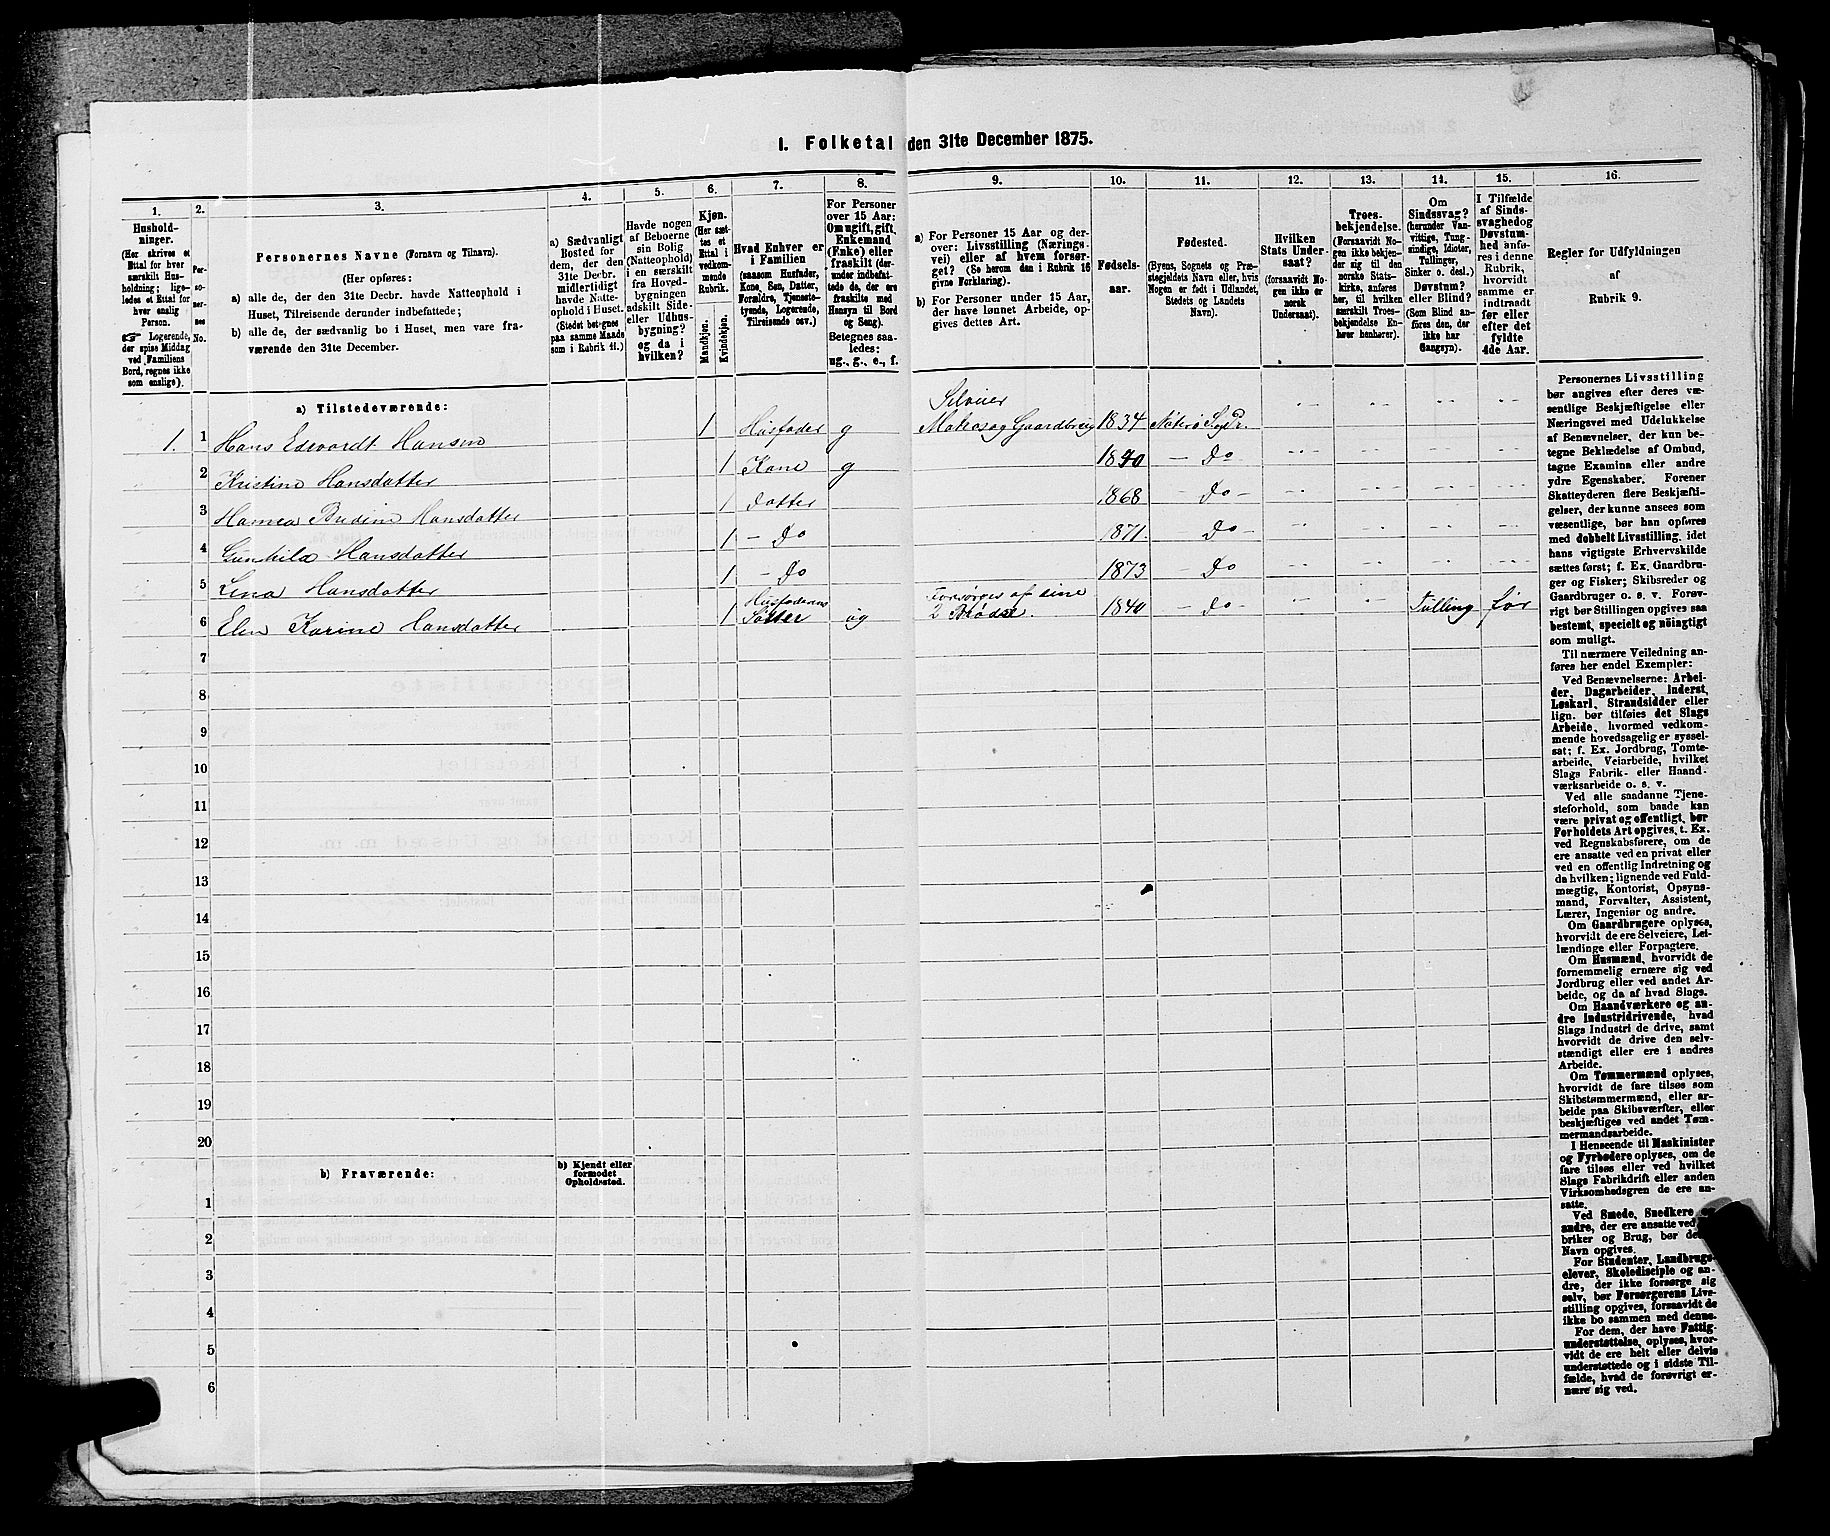 I. Folketal den 31te December 1875.
1.
2.
3.
4.
5.
6.
7.
8.
9.
10.
11.
12.
13.
14.
15.
16.
Hushold-
ninger.
(Her skrives et
Ettal for hver
særskilt Hus-
holdning; lige-
ledes et Ettal for
hver enslig
Person.
☞ Logerende,
der spise Middag
ved Familiens
Bord, regnes ikke
som enslige).
Per-
so-
ner-
nes
No.
Personernes Navne (Fornavn og Tilnavn).
(Her opføres:
a) alle de, der den 31te Decbr. havde Natteophold i
Huset, Tilreisende derunder indbefattede;
b) alle de, der sædvanlig bo i Huset, men vare fra-
værende den 31te December.
a) Sædvanligt
Bosted for
dem, der den
31te Decbr.
midlertidigt
havde Natte-
ophold i Huset.
(Stedet betegnes
paa samme Maade
som i Rubrik 11.)
Havde nogen
af Beboerne
sin Bolig
(Natteophold)
i en særskilt
fra Hoved-
bygningen
adskilt Side-
eller Udhus-
bygning?
og da i
hvilken?
Kjøn.
(Her sæt-
tes et
Ettal i
vedkom-
mende
Rubrik.
Mandkjøn.
Kvindekjøn.
Hvad Enhver er
i Familien
(saasom Husfader,
Kone, Søn, Datter,
Forældre, Tjeneste-
tyende, Logerende,
Tilreisende osv.)
For Personer
over 15 Aar:
Om ugift, gift,
Enkemand
(Enke) eller
fraskilt (der-
under indbefat-
tede de, der ere
fraskilte med
Hensyn til Bord
og Seng).
Betegnes saa-
ledes:
ug., g., e., f.
a) For Personer 15 Aar og der-
over: Livsstilling (Nærings-
vei) eller af hvem forsør-
get? (Se herom den i Rubrik 16
givne Forklaring).
b) For Personer under 15 Aar,
der have lønnet Arbeide, op-
gives dettes Art.
Fødsels-
aar.
Fødested.
(Byens, Sognets og Præ-
stegjeldets Navn eller, hvis
Nogen er født i Udlandet,
Stedets og Landets
Navn).
Hvilken
Stats Under-
saat?
(forsaavidt No-
gen ikke er
norsk
Undersaat).
Troes-
bekjendelse.
(Forsaavidt No-
gen ikke bekjen-
der sig til den
norske Stats-
kirke, anføres
her, til hvilken
særskilt Troes-
bekjendelse En-
hver henhører).
Om
Sindssvag?
(herunder Van-
vittige, Tung-
sindige, Idioter,
Tullinger,
Sinker o. desl.)
Døvstum?
eller Blind?
(Som Blind an-
føres den, der
ikke har
Gangsyn).
I Tilfælde
af Sinds-
svaghed og
Døvstum-
hed anfø-
res i denne
Rubrik,
hvorvidt
samme er
indtraadt
før eller
efter det
fyldte
4de Aar.
Regler for Udfyldningen
af
Rubrik 9.
a) Tilstedeværende:
1. 1 Hans Edevardt Hansen 1 Husfader g Selveier Matros og Gaardbrug 1834 Nøterø Sog Pr.
2 Kristine Hansdatter 1 Kone g 1840 - Do
3 Hansdatter 1 Datter 1868 - Do -
4 Gunhild Hansdatter 1 - Do 1871. - Do -
5 Lena Hansdatter 1 - Do 1873 - Do
6 Elen Karine Hansdatter 1 Husfaderens Søster ug Forsørges af sine 2 Brødre. 1840 - Do - Tulling før
7
8
9
10
11
12
13
14
15
16
17
18
19
20
b) Fraværende:
b) Kjendt eller
formodet
Opholdssted.
1
2
3
4
5
6
Personernes Livsstilling
bør angives efter deres væ-
sentlige Beskjæftigelse eller
Næringsvei med Udelukkelse
af Benævnelser, der kun be-
tegne Beklædelse af Ombud,
tagne Examina eller andre
ydre Egenskaber. Forener
Skatteyderen flere Beskjæfti-
gelser, der kunne ansees som
væsentlige, bør han opføres
med dobbelt Livsstilling, idet
hans vigtigste Erhvervskilde
sættes først; f. Ex. Gaardbru-
ger og Fisker; Skibsreder og
Gaardbruger o. s. v. Forøv-
rigt bør Stillingen opgives saa
bestemt, specielt og nöingtigt
som muligt.
Til nærmere Veiledning an-
føres her endel Exempler:
Ved Benævnelserne: Arbei-
der, Dagarbeider, Inderst,
Løskarl, Strandsidder eller
lign. bør tilføies det Slags
Arbeide, hvormed vedkom-
mende hovedsagelig er syssel-
sat; f. Ex. Jordbrug, Tomte-
arbeide, Veiarbeide, hvilket
Slags Fabrik- eller Haand-
værksarbeide o. s. v.
Ved alle saadanne Tjene-
steforhold, som baade kan
være privat og offentligt, bør
Forholdets Art opgives, t. Ex.
ved Regnskabsførere, om de
ere ansatte ved en privat eller
ved en offentlig Indretning og
da hvilken; lignende ved Fuld-
mægtig, Kontorist, Opsyns-
mand, Forvalter, Assistent,
Lærer, Ingeniør og andre.
Om Gaardbrugere oplyses,
hvorvidt de ere Selveiere, Lei-
lændinge eller Forpagtere.
Om Husmænd, hvorvidt de
fornemmelig ernære sig ved
Jordbrug eller ved andet Ar-
beide, og da af hvad Slags.
Om Haandværkere og an-
dre Industridrivende, hvad
Slags Industri de drive, samt
hvorvidt de drive den selv-
stændigt eller ere i andres
Arbeide.
Om Tømmermænd oplyses,
hvorvidt de fare tilsøs som
Skibstømmermænd, eller ar-
beide paa Skibsværfter, eller
beskjæftiges ved andet Tøm-
mermandsarbeide.
I Henseende til Maskinister
og Fyrbødere oplyses, om de
fare tilsøs eller ved hvilket
Slags Fabrikdrift eller anden
Virksomhedsgren de ere an-
satte.
Ved Smede, Snedkere
andre, der ere ansatte ved
briker og Brug, bør de
Navn opgives.
For Studenter, Landbrugs-
elever, Skoledisciple og an-
dre, der ikke forsørge sig
selv, bør Forsørgerens Livs-
stilling opgives, forsaavidt de
ikke bo sammen med denne.
For dem, der have Fattig-
understøttelse, oplyses, hvor-
vidt de ere helt eller delvis
understøttede og i sidste Til-
fælde, hvad de forøvrigt er-
nære sig ved.